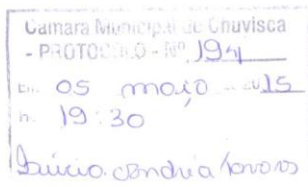 Câmara Municipal de Chuvisca
- PROTOCOLO - Nº 194
Em 05 maio - 2015
h. 19:30